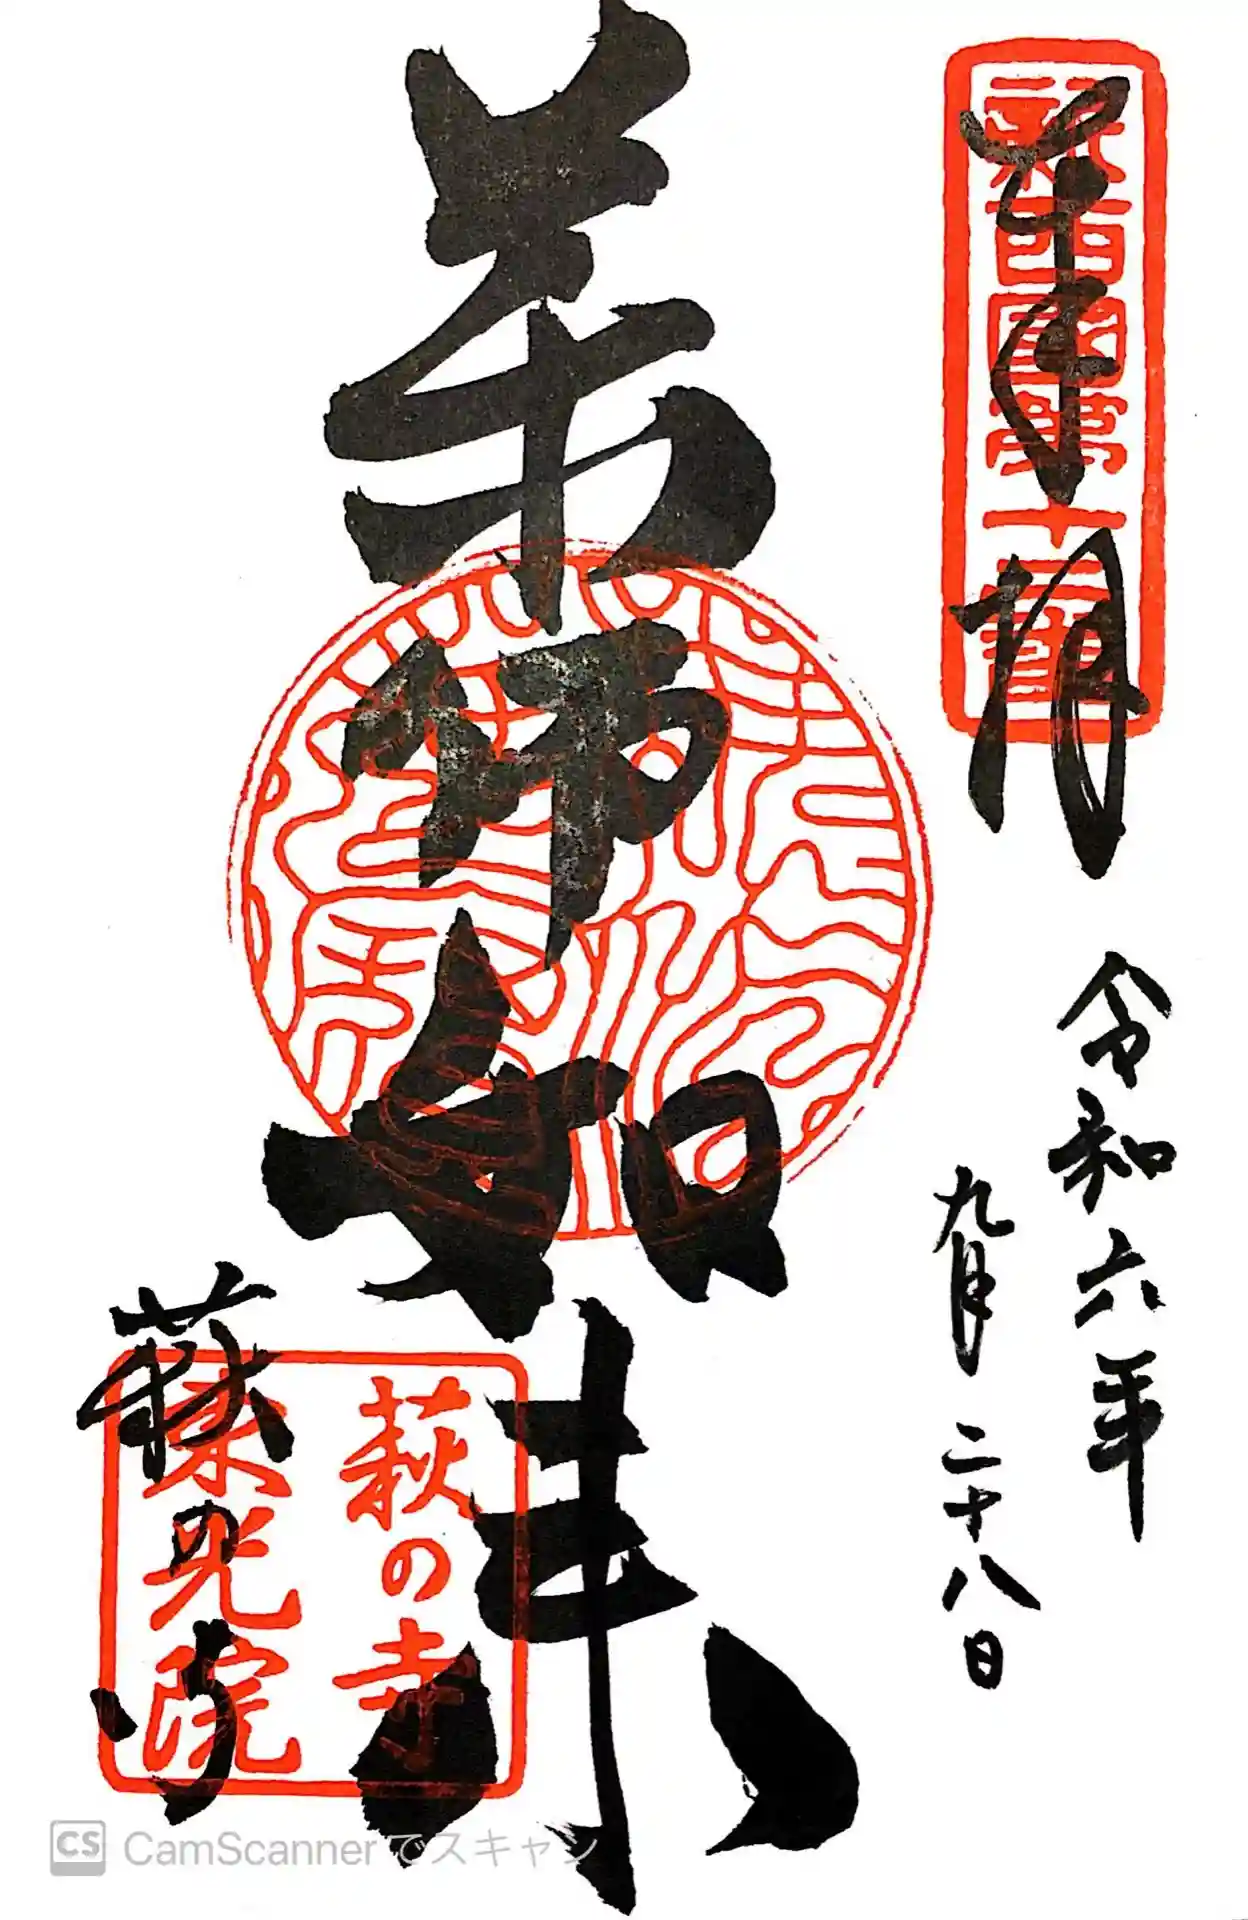 奉拝
新西國第十二番
令和六年
九月二十八日
薬師如来
萩の寺
萩の寺
東光院
CS CamScannerでスキャン